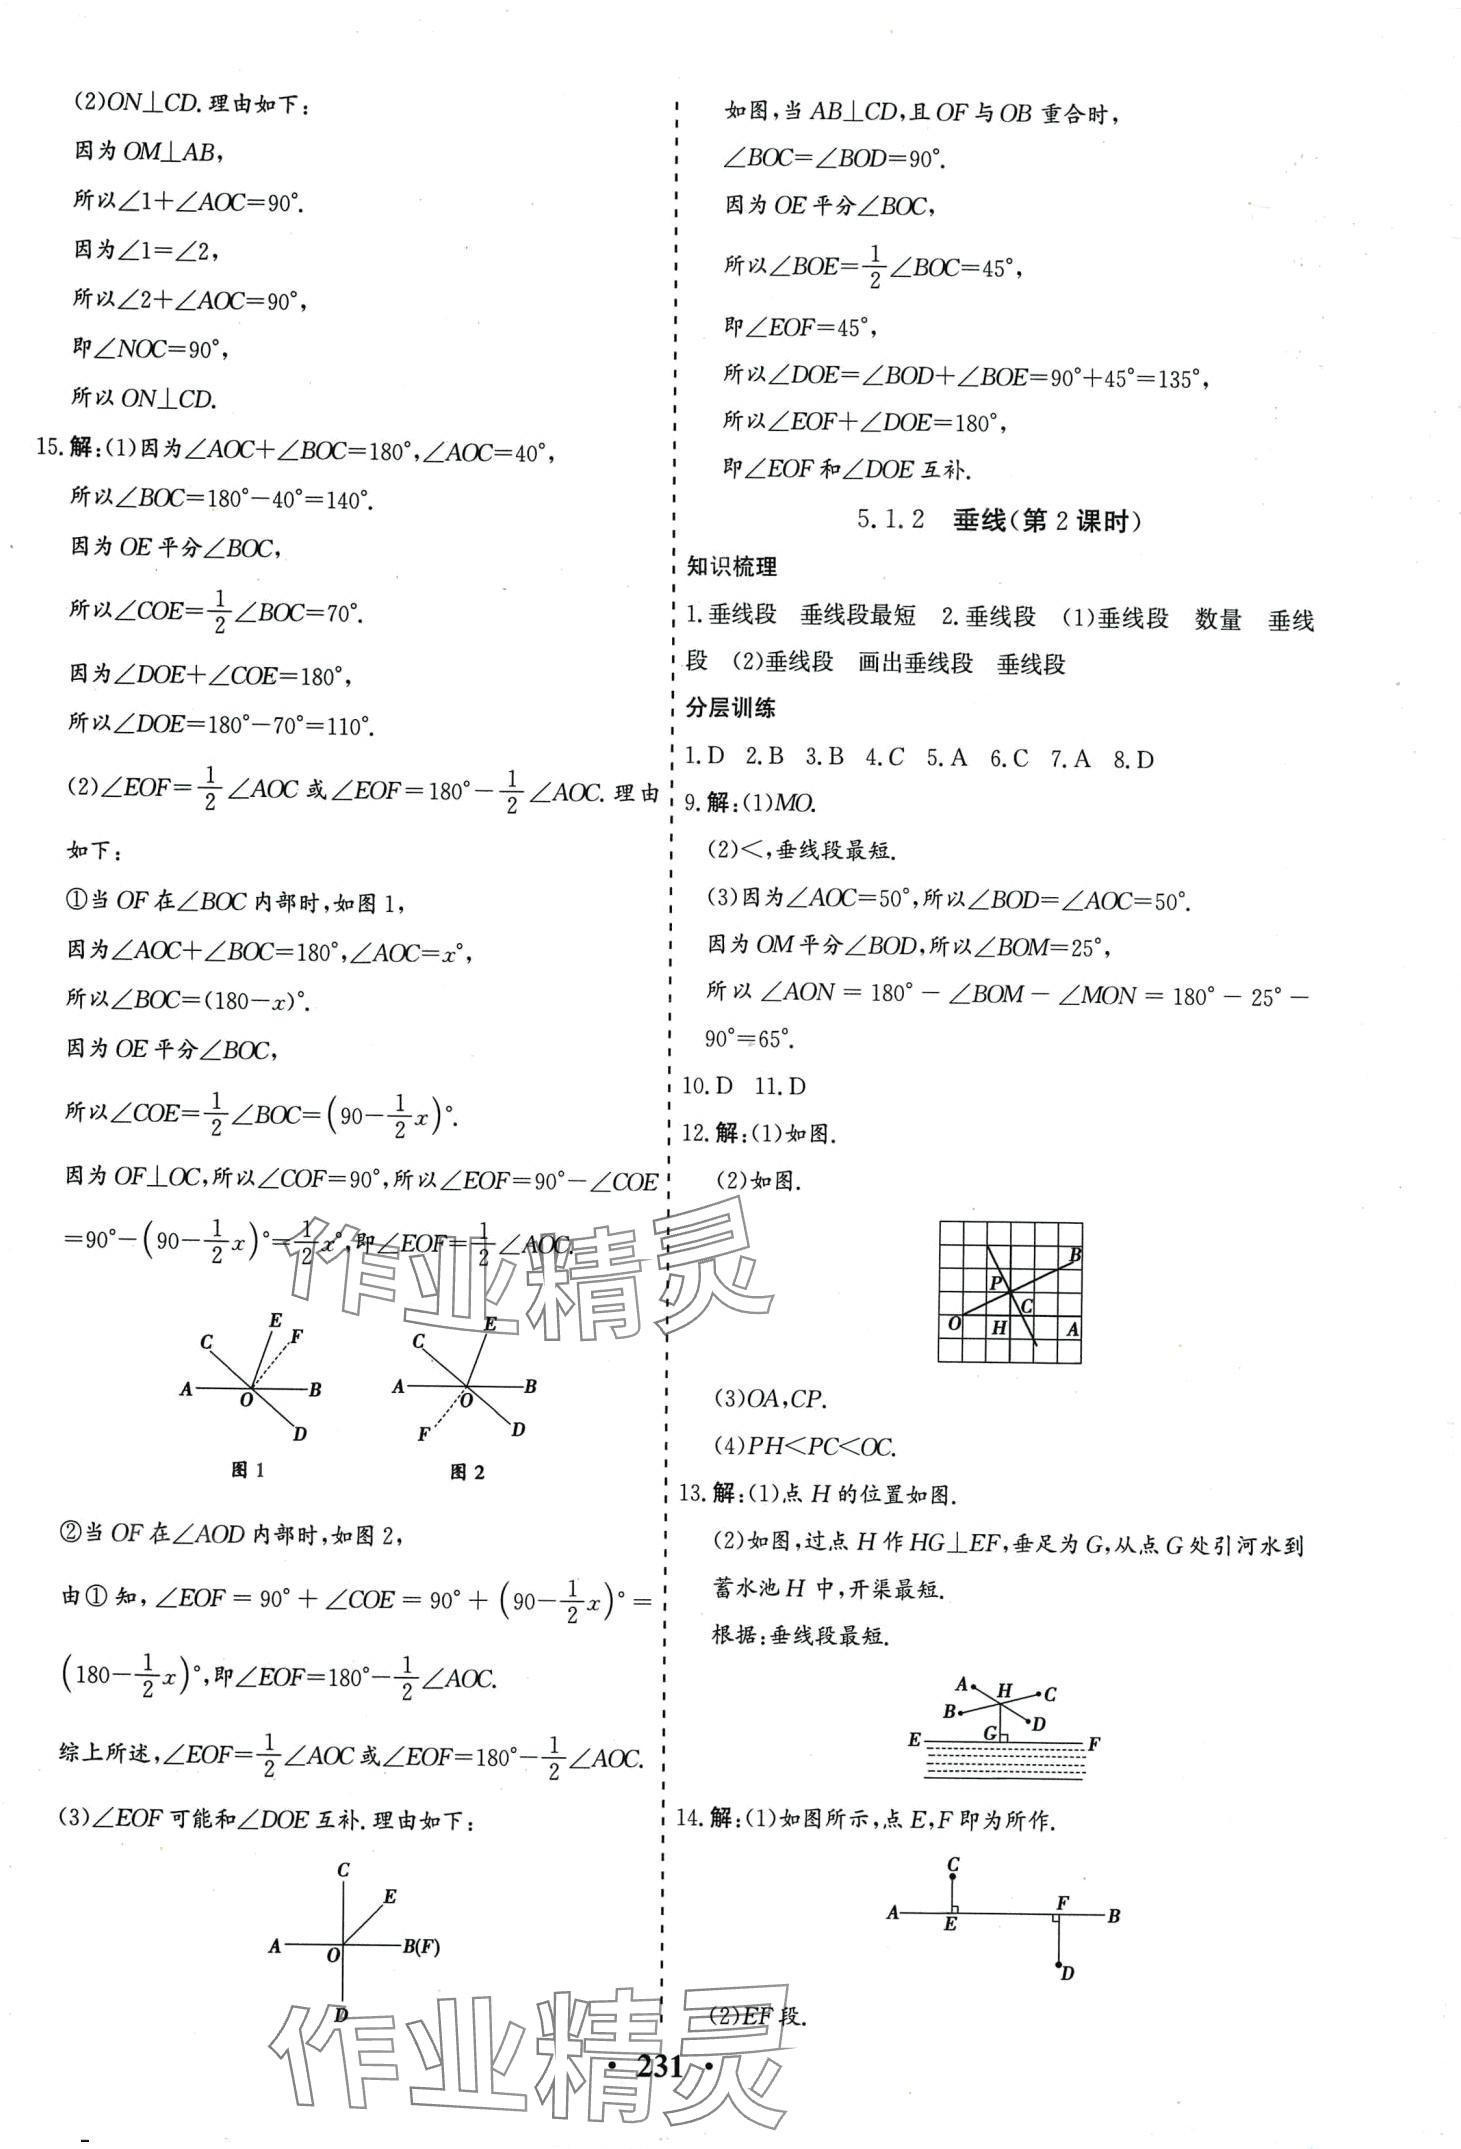 (2)ON⊥CD.理由如下:
因为OM⊥AB,
所以∠1+∠AOC=90°.
因为∠1=∠2,
所以∠2+∠AOC=90°,
即∠NOC=90°,
所以ON⊥CD.
15.解:(1)因为∠AOC+∠BOC=180°,∠AOC=40°,
所以∠BOC=180°-40°=140°.
因为OE平分∠BOC,
所以∠COE=1/2∠BOC=70°.
因为∠DOE+∠COE=180°,
所以∠DOE=180°-70°=110°.
(2)∠EOF=1/2∠AOC或∠EOF=180°-1/2∠AOC.理由
如下:
①当OF在∠BOC内部时,如图1,
因为∠AOC+∠BOC=180°,∠AOC=x°,
所以∠BOC=(180-x)°.
因为OE平分∠BOC,
所以∠COE=1/2∠BOC=(90-1/2x)°.
因为OF⊥OC,所以∠COF=90°,所以∠EOF=90°-∠COE
=90°-(90-1/2x)°=1/2x°,即∠EOF=1/2∠AOC.
作业精灵
C E F A O B D
C E A O B F D
图1 图2
②当OF在∠AOD内部时,如图2,
由①知,∠EOF=90°+∠COE=90°+(90-1/2x)°=
(180-1/2x)°,即∠EOF=180°-1/2∠AOC.
综上所述,∠EOF=1/2∠AOC或∠EOF=180°-1/2∠AOC.
(3)∠EOF可能和∠DOE互补.理由如下:
C
E
A O B(F)
D
作业精灵
如图,当AB⊥CD,且OF与OB重合时,
∠BOC=∠BOD=90°.
因为OE平分∠BOC,
所以∠BOE=1/2∠BOC=45°,
即∠EOF=45°,
所以∠DOE=∠BOD+∠BOE=90°+45°=135°,
所以∠EOF+∠DOE=180°,
即∠EOF和∠DOE互补.
5.1.2 垂线(第2课时)
知识梳理
1.垂线段 垂线段最短 2.垂线段 (1)垂线段 数量 垂线
段 (2)垂线段 画出垂线段 垂线段
分层训练
1.D 2.B 3.B 4.C 5.A 6.C 7.A 8.D
9.解:(1)MO.
(2)<,垂线段最短.
(3)因为∠AOC=50°,所以∠BOD=∠AOC=50°.
因为OM平分∠BOD,所以∠BOM=25°,
所以∠AON=180°-∠BOM-∠MON=180°-25°-
90°=65°.
10.D 11.D
12.解:(1)如图.
(2)如图.
B
P C
O H A
(3)OA,CP.
(4)PH<PC<OC.
13.解:(1)点H的位置如图.
(2)如图,过点H作HG⊥EF,垂足为G,从点G处引河水到
蓄水池H中,开渠最短.
根据:垂线段最短.
A H C
B D
E G F
14.解:(1)如图所示,点E,F即为所作.
C
A E F B
D
(2)EF段.
· 231 ·